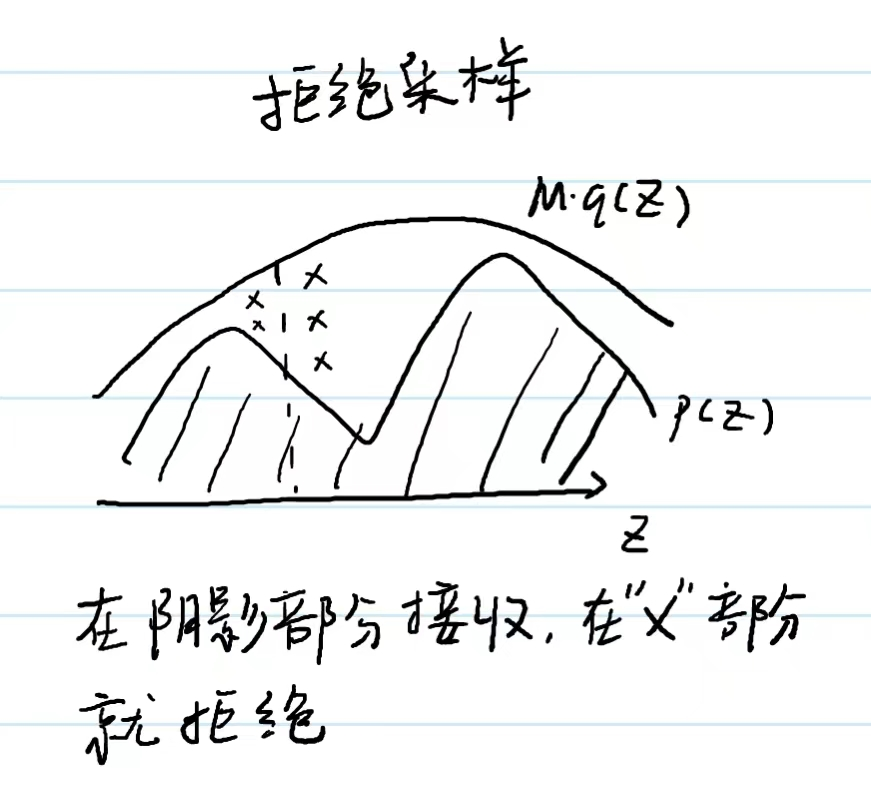 拒绝采样
M·q(Z)
p(Z)
Z
在阴影部分接收，在"x"部分
就拒绝